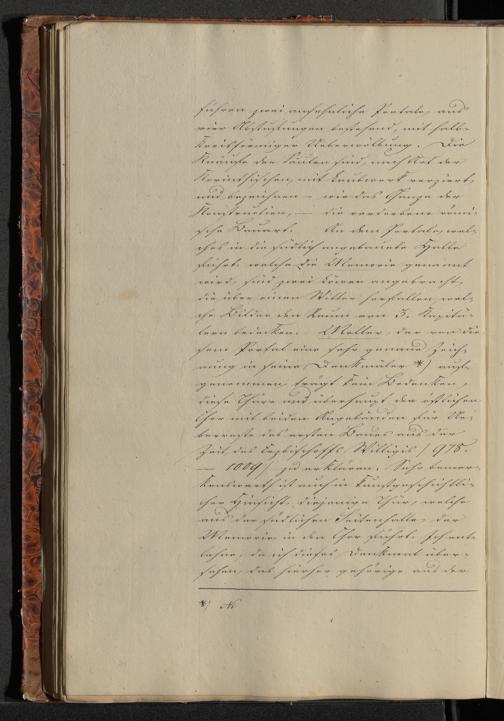 führen zwei ansehnliche Portale, aus
vier Abstufungen bestehend, mit halb-
kreisförmiger Ueberwölbung. Die
Knäufe der Säulen sind, nach Art der
Korinthischen, mit Laubwerk verziert,
und bezeichnen – wie das Ganze der
Konstruktion, – die verdorbene römi-
sche Bauart. An dem Portale, wel-
ches in die südlich angebaute Halle
führt, welche die Memorie genannt
wird, sind zwei Löwen angebracht,
die über einen Widder herfallen, wel-
che Bilder den Raum von 3. Kapitä-
lern bedecken. Moller, der von die-
sem Portal eine sehr genaue Zeich-
nung in seine Denkmäler *) auf-
genommen trägt kein Bedenken,
diese Thüre und überhaupt den östlichen
Chor mit beiden für Ue-
berreste des ersten Baues aus der
Zeit des Erzbischoffs Willigis /978.
– 1009/ zu erklären. Sehr bemer-
kenswerth ist auch in kunstgeschichtli-
cher Hinsicht diejenige Thür, welche
aus der südlichen Seitenhalle, der
Memorie in den Chor führt. Ich ent-
lehne, da ich dieses Denkmal über-
sehen, das hierher gehörige aus der
*) N